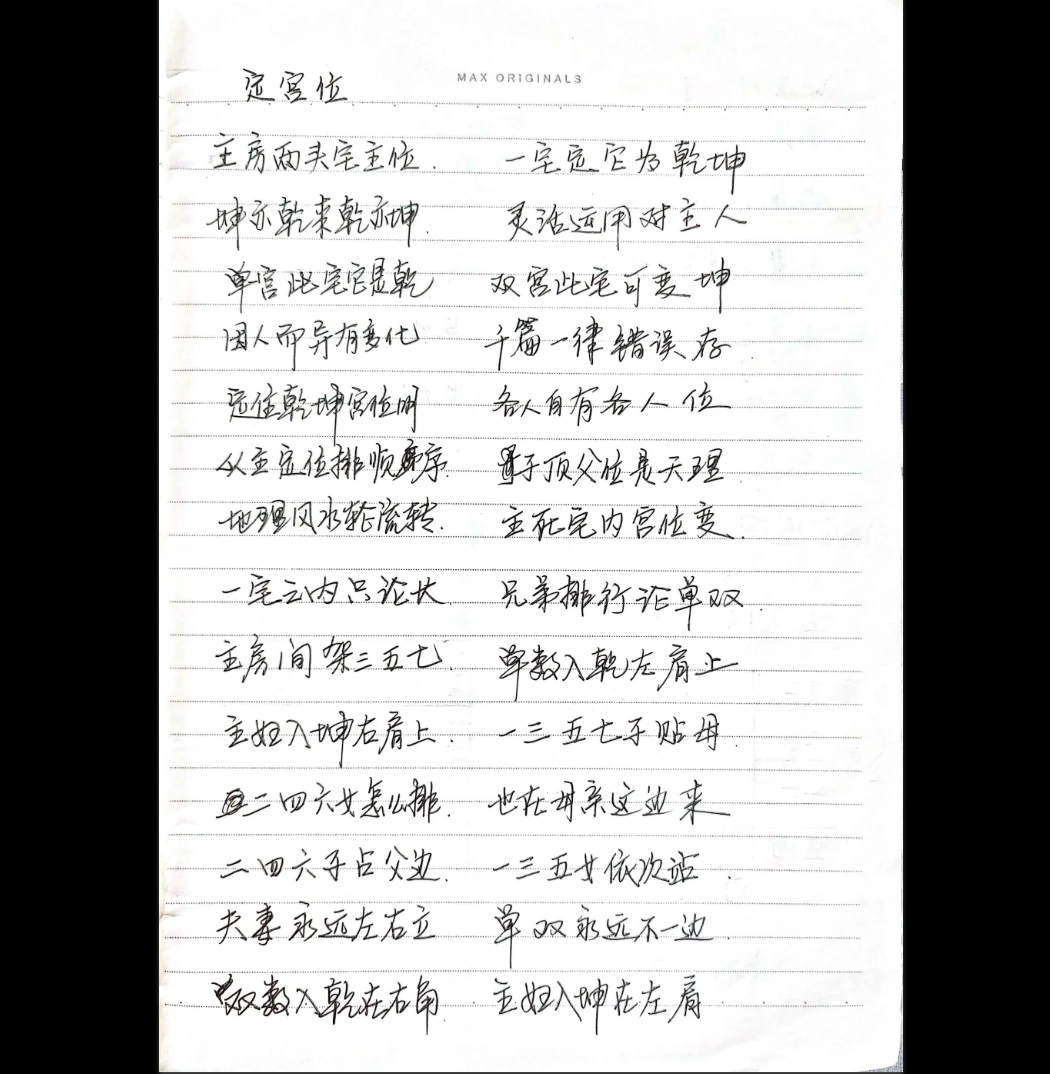 MAX ORIGINALS
定宫位
主房两头宅主位. 一宅定它为乾坤
坤亦乾来乾亦坤. 灵活运用对主人
单宫此宅它是乾 双宫此宅可变坤
因人而异有变化 千篇一律错误存
定住乾坤宫位明 各人自有各人位
从主定位排顺序. 长子顶父位是天理
地理风水轮流转. 主死宅内宫位变.
一宅之内只论长 兄弟排行论单双.
主房间架三五七. 单数入乾左肩上
主妇入坤右肩上. 一三五七子贴母.
二四六女怎么排. 也在母亲这边来
二四六子占父边. 一三五女依次站.
夫妻永远左右立 单双永远不一边.
双数入乾在右角 主妇入坤在左肩